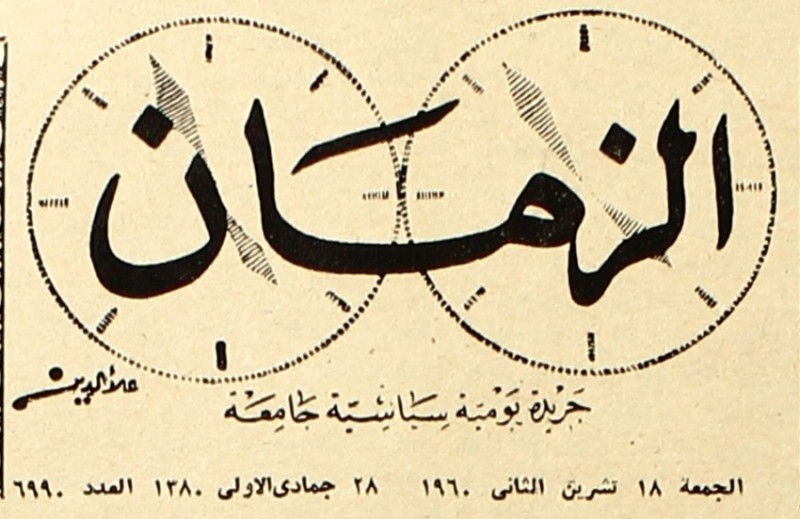 الزمان
علاءالدين
جريدة يومية سياسية جامعة
الجمعة ١٨ تشرين الثانى ١٩٦٠ ٢٨ جمادى الاولى ١٣٨٠ العدد ٦٩٩٠